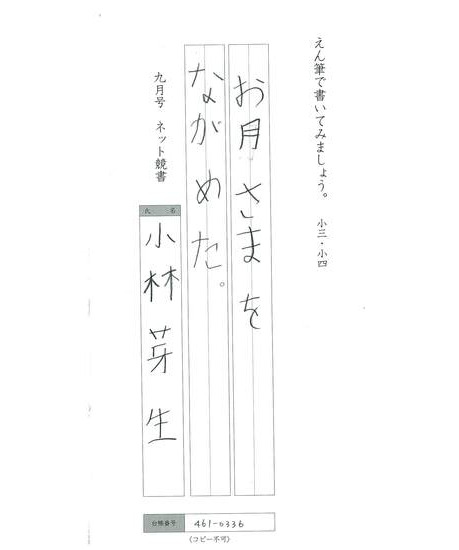 えん筆で書いてみましょう。 小三・小四
お月さまを
ながめた。
九月号 ネット競書
氏 名
小林芽生
台帳番号 461-0336
(コピー不可)